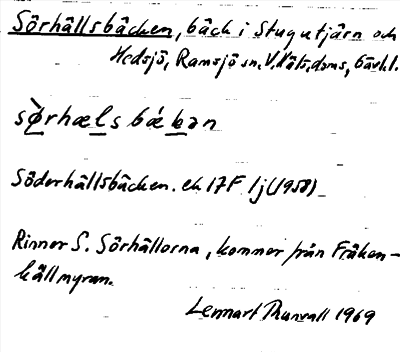 Sörhällsbäcken, bäck i Stugutjärn och
Hedsjö, Ramsjö sn. V. Häls. doms, Gävhl.
sø̀rhæls bǽkən
Söderhällsbäcken. ek 17F 1j (1958)
Rinner S. Sörhällorna, kommer från Fräken-
källmyran.
Lennart 1969